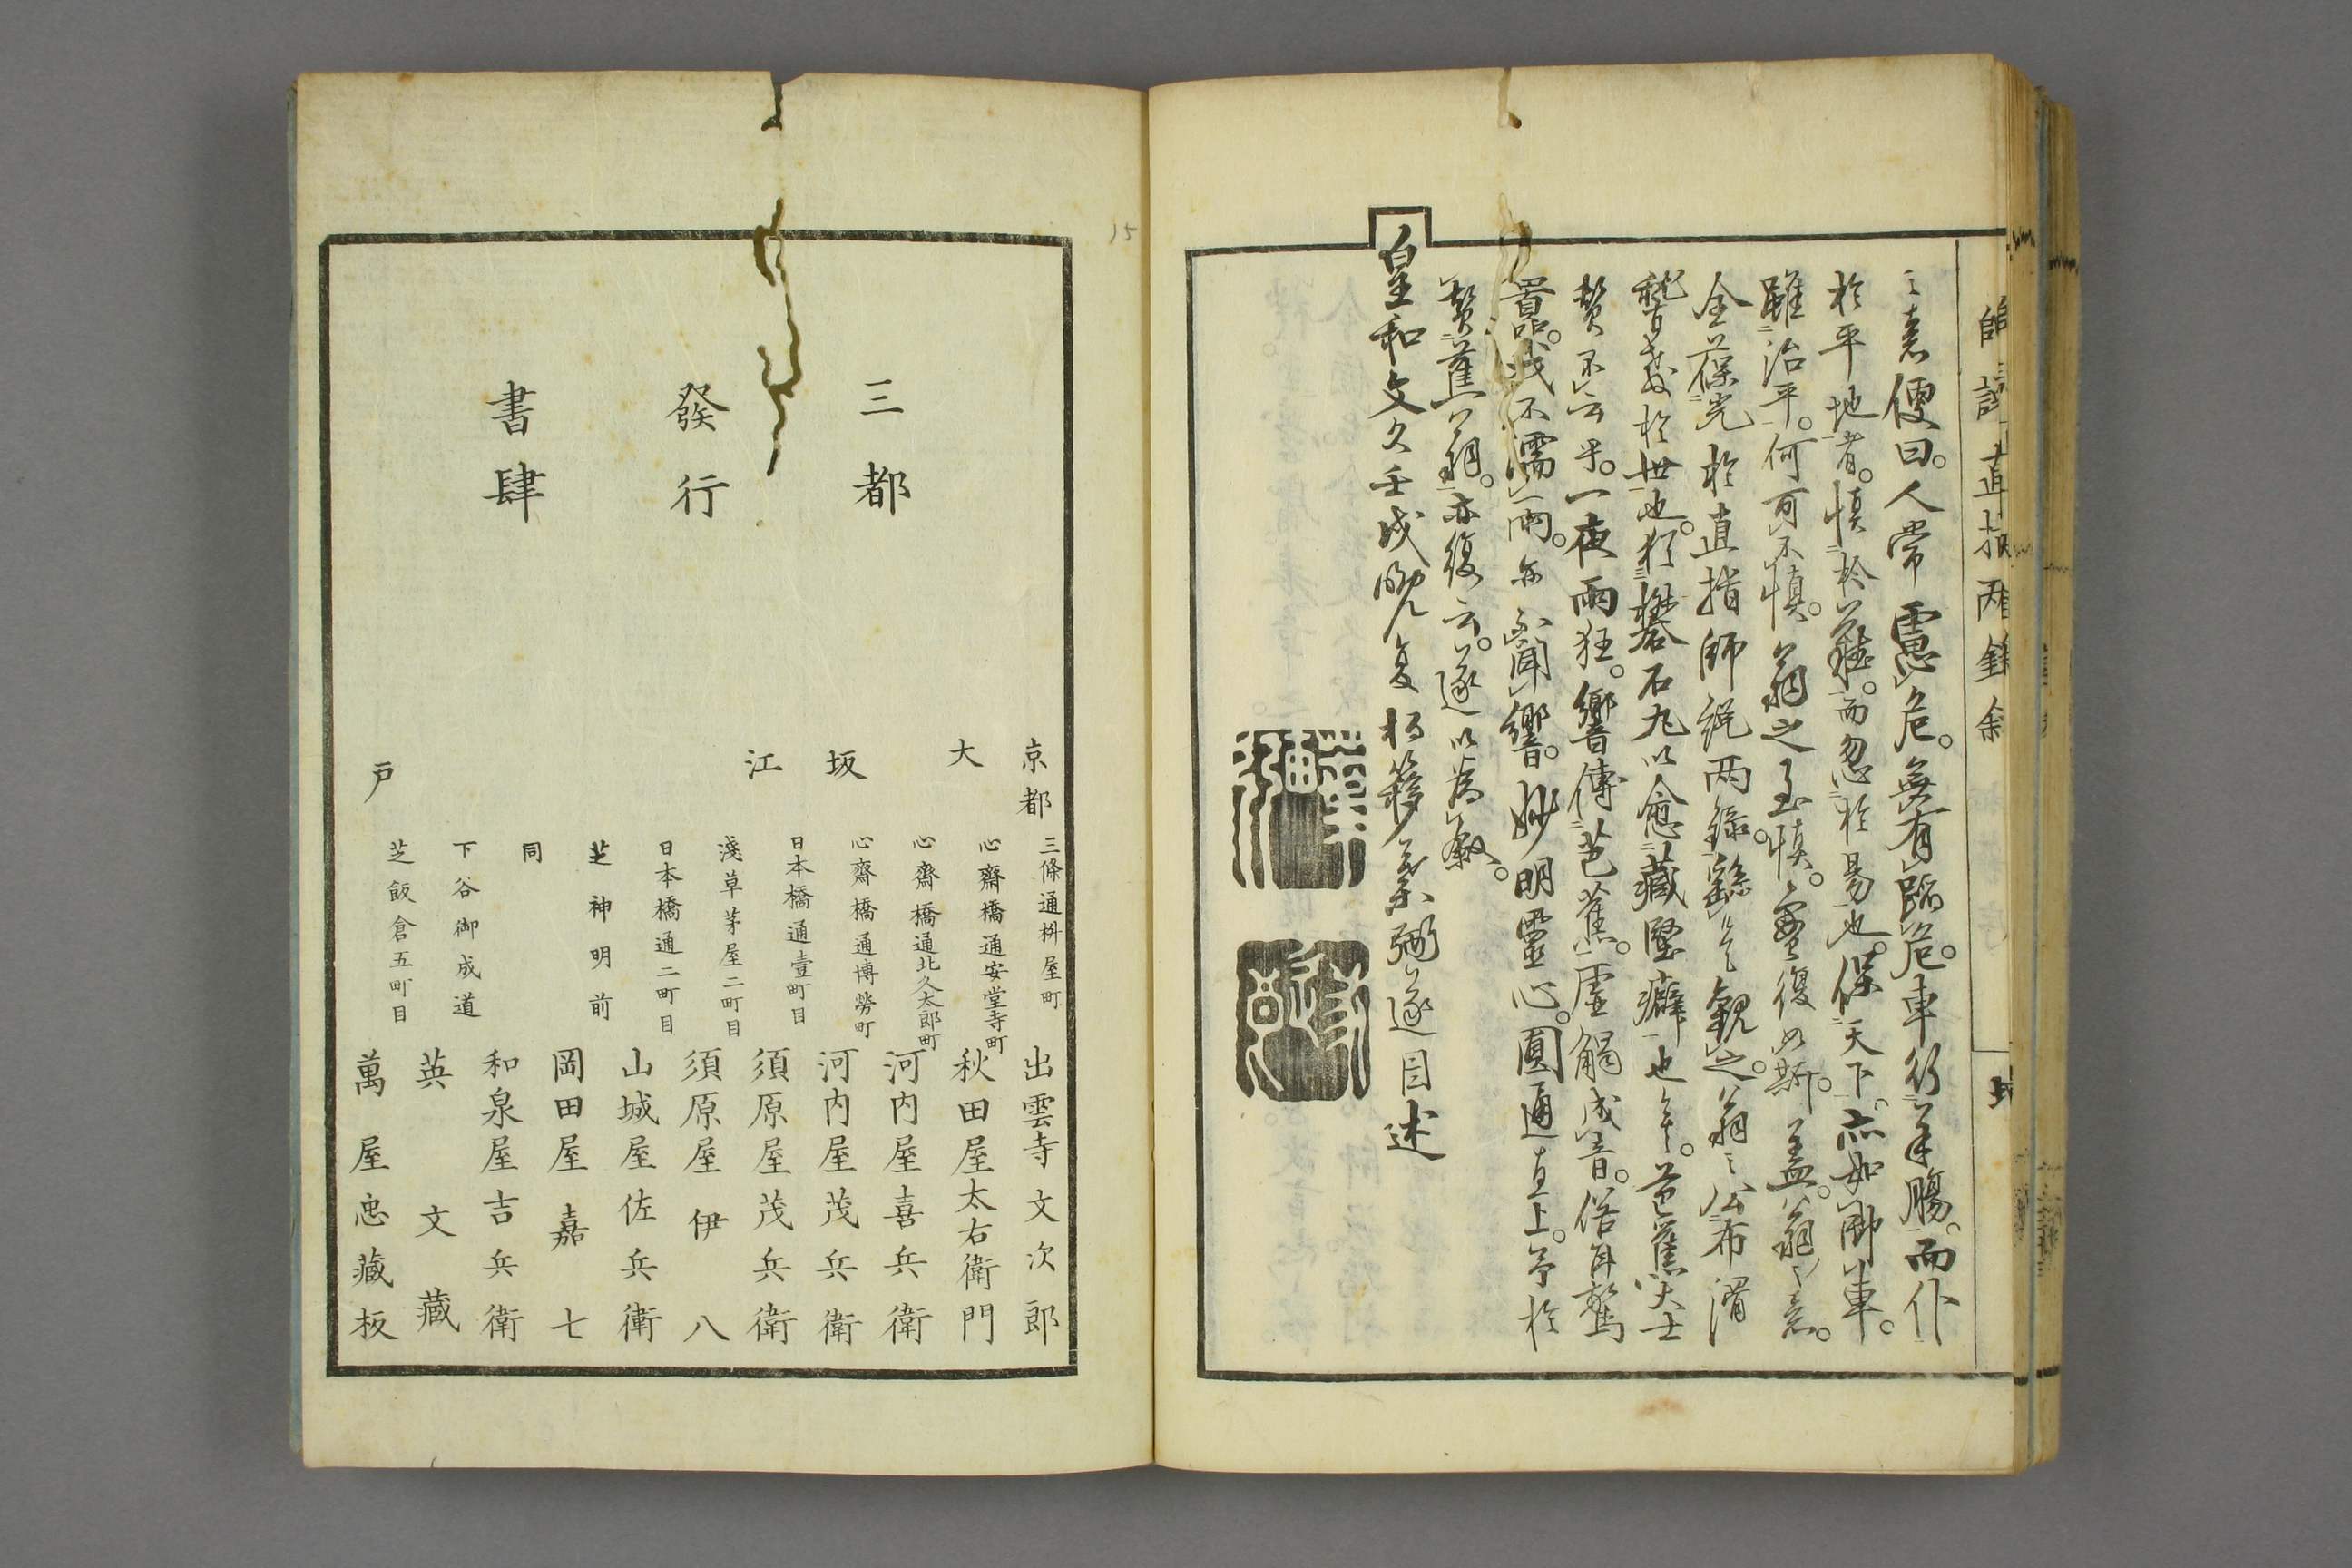 師説直指両録叙
之意便曰。人常慮危。無有臨危。車行羊腸。而仆
於平地者。慎於難。而忽於易也。保天下。亦如御車。
雖治平。何可不慎。翁之至慎。復如斯。盖翁之意。
全葆光於直指師説両録。觀之。翁之公布
於世也。以愈蔵堅癖也矣。芭蕉大士
賛不云乎。一夜雨狂。響傳芭蕉。虚觸成音。俗耳驚
囂。我不濡雨。亦不聞響。妙明靈心。圓通直上。予於
賛蕉翁。亦復云。遂以為叙。
皇和文久壬戌晩夏
述
三都
發行
書肆
京都 三條通桝屋町 出雲寺文次郎
大 心齋橋通安堂寺町 秋田屋太右衛門
心齋橋通北久太郎町 河内屋喜兵衛
坂 心齋橋通博勞町 河内屋茂兵衛
日本橋通壹町目 須原屋茂兵衛
江 淺草茅屋二町目 須原屋伊八
日本橋通二町目 山城屋佐兵衛
芝神明前 岡田屋嘉七
同 和泉屋吉兵衛
下谷御成道 英文藏
戸 芝飯倉五町目 萬屋忠藏板